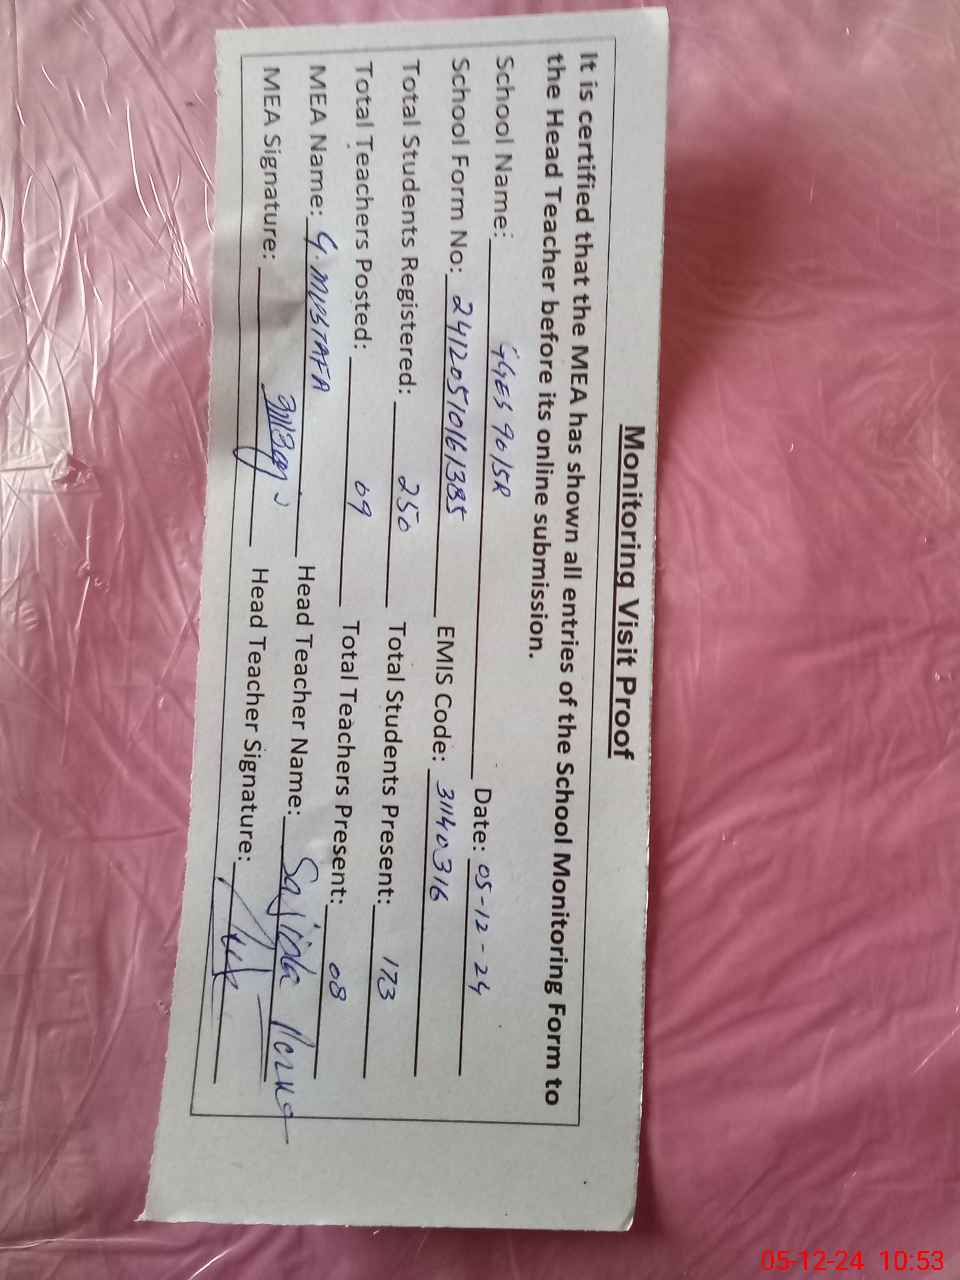 Monitoring Visit Proof
It is certified that the MEA has shown all entries of the School Monitoring Form to
the Head Teacher before its online submission.
School Name: GGES 90/5R Date: 05-12-24
School Form No: 24120510161385 EMIS Code: 31140316
Total Students Registered: 250 Total Students Present: 173
Total Teachers Posted: 09 Total Teachers Present: 08
MEA Name: G. MUSTAFA Head Teacher Name: Sajida
MEA Signature: Head Teacher Signature:
05-12-24 10:53